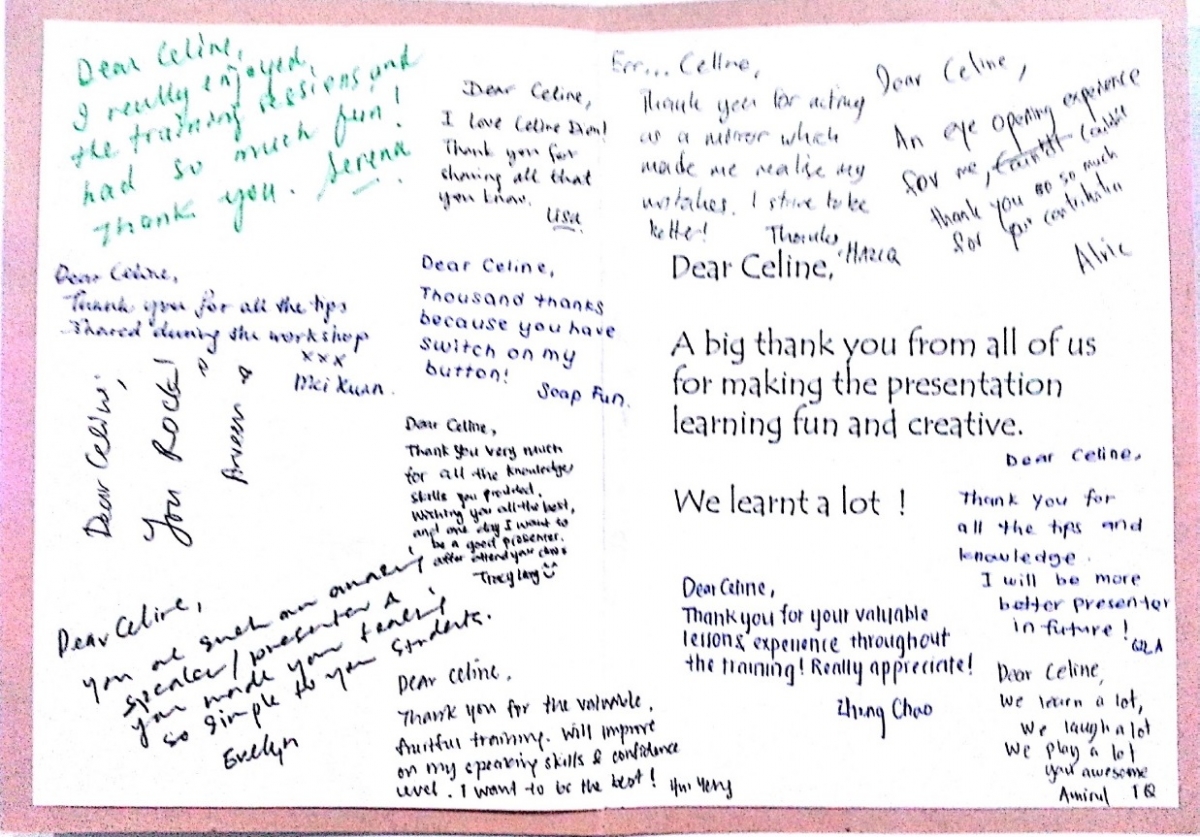 Dear Celine,
I really enjoyed
the training sessions and
had so much fun!
Thank you. Serena
Dear Celine,
I love Celine Dion!
Thank you for
sharing all that
you know.
Lisa
Err... Celine,
Thank you for acting
as a mirror which
made me realise my
mistakes. I strive to be
better!
Thanks,
Dear Celine,
An eye opening experience
for me,
thank you so much
for your contribution
Alvic
Dear Celine,
Thank you for all the tips
shared during the workshop
xxx
Mei Kuan.
Dear Celine,
Thousand thanks
because you have
switch on my
button!
Soap Fun.
Dear Celine,
A big thank you from all of us
for making the presentation
learning fun and creative.
We learnt a lot !
Dear Celine,
You Rock!
Dear Celine,
Thank you very much
for all the knowledge,
skills you provided.
Wishing you all the best,
and one day I want to
be a good presenter.
after attend your class
Dear Celine,
you are such an amazing
speaker/presenter &
you made your teaching
so simple to your students.
Evelyn
Dear Celine,
Thank you for the valuable,
fruitful training. Will improve
on my speaking skills & confidence
level. I want to be the best! Hui Yeng
Dear Celine,
Thank you for your valuable
lessons, experience throughout
the training! Really appreciate!
Zhung Chao
Dear Celine,
Thank you for
all the tips and
knowledge.
I will be more
better presenter
in future!
Dear Celine,
We learn a lot,
We laugh a lot
We play a lot
you awesome
Amirul